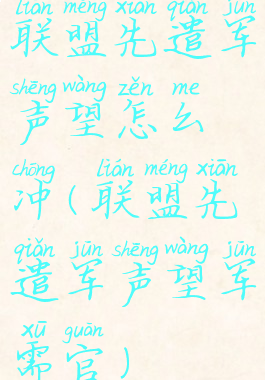 lián méng xiān qiǎn jūn
联盟先遣军
shēng wàng zěn me
声望怎么
chōng lián méng xiān
冲(联盟先
qiǎn jūn shēng wàng jūn
遣军声望军
xū guān
需官)